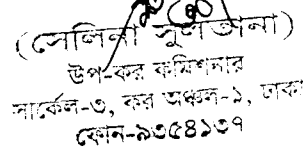 (সেলিনা সুলতানা)
উপ-কর কমিশনার
সার্কেল-৩, কর অঞ্চল-১, ঢাকা
ফোন-৯৩৫৪১৩৭